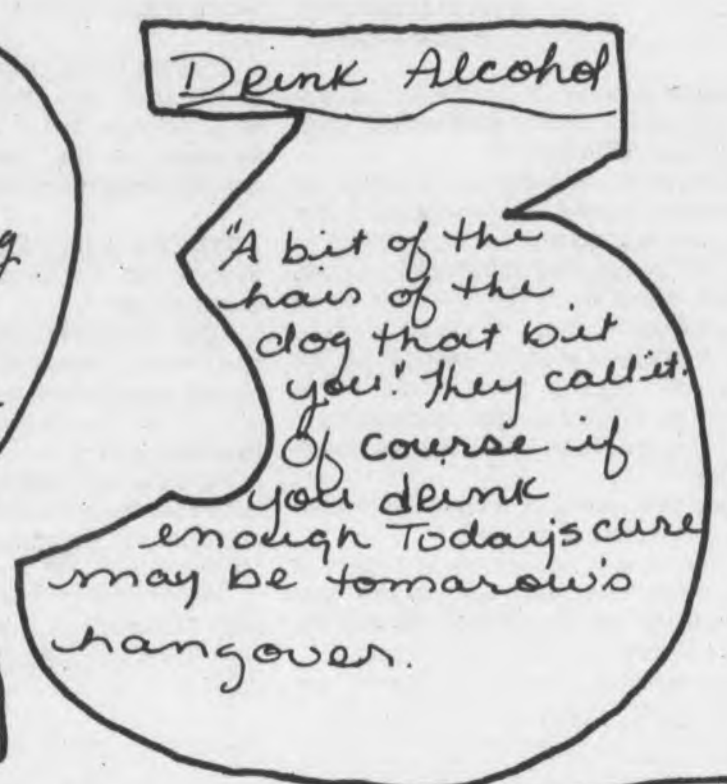 Drink Alcohol
g
"A bit of the
hair of the
dog that bit
you." They call it.
Of course if
you drink
enough Today's cure
may be tomarow's
hangover.